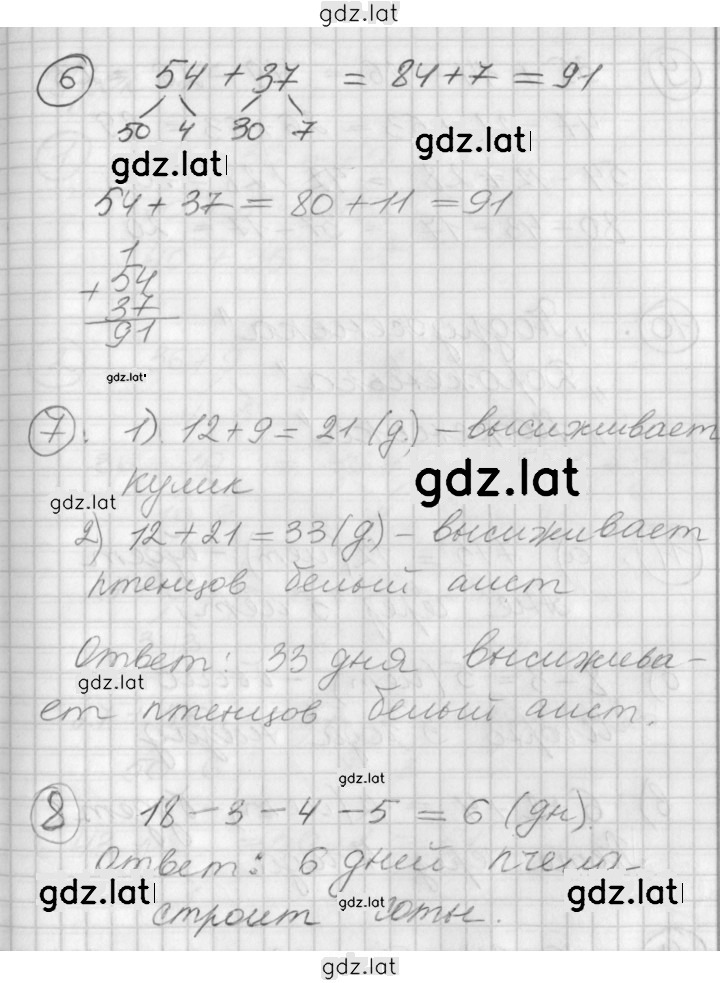 gdz.lat
6 54 + 37 = 84 + 7 = 91
50 4 30 7
gdz.lat
gdz.lat
54 + 37 = 80 + 11 = 91
1
+ 54
37
91
gdz.lat
7. 1) 12 + 9 = 21 (д.) – высиживает
кулик
gdz.lat
gdz.lat
2) 12 + 21 = 33 (д.) – высиживает
птенцов белый аист
Ответ: 33 дня высижива-
gdz.lat
ет птенцов белый аист.
gdz.lat
8 18 – 3 – 4 – 5 = 6 (дн).
Ответ: 6 дней пчела
gdz.lat
gdz.lat
gdz.lat
строит соты.
gdz.lat